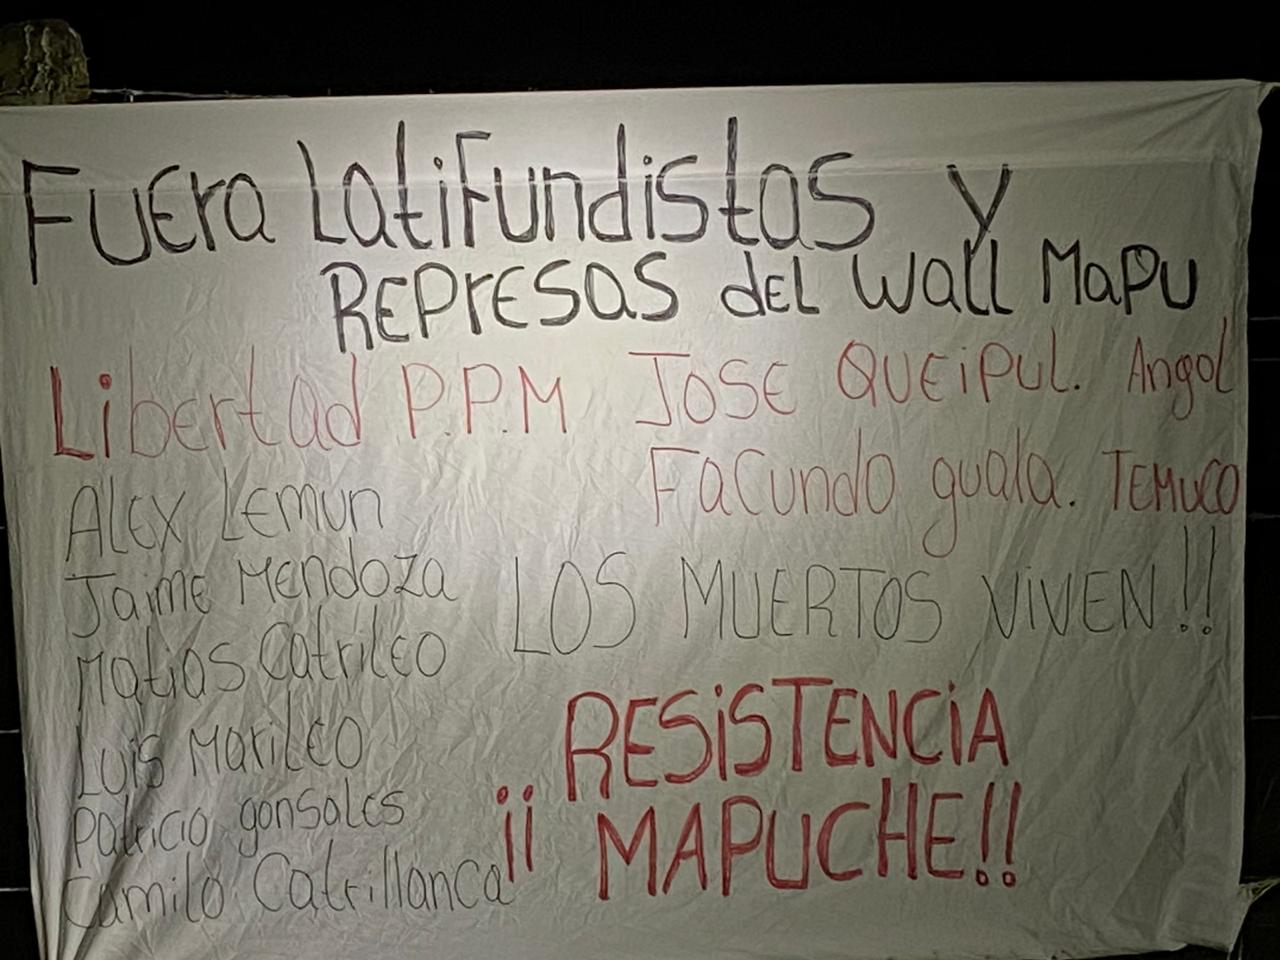 Fuera Latifundistas y
Represas del Wall Mapu
Libertad P.P.M Jose Queipul. Angol
Facundo guala. Temuco
Alex Lemun
Jaime Mendoza
Matias Catrileo
Luis Marileo
Patricio gonsales
Camilo Catrillanca
LOS MUERTOS ViVEN!!
RESiSTENCiA
¡¡ MAPUCHE!!